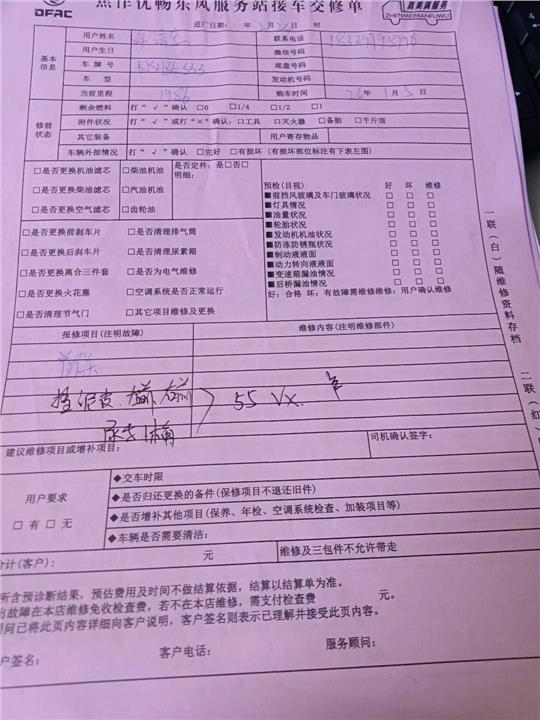 焦作优畅东风服务站接车交修单
DFAC
真美满服务
ZHENMEIMANFUWU
进厂日期： 年 月
基本信息
用户姓名 联系电话
用户生日 微信号码
车牌号 底盘号码
车型 发动机号码
当前里程 1986 购车时间 26年1月5日
修前状态
剩余燃料 打“√”确认 □0 □1/4 □1/2 □1
附件状况 打“√”或打“×”确认：□工具 □灭火器 □备胎 □千斤顶
其它装备 用户寄存物品
车辆外部情况 打“√”确认 □完好 □有损坏（有损部位标注有下表左图）
□是否更换机油滤芯 □柴油机油 是否定件：是□否□
明细：
□是否更换柴油滤芯 □汽油机油
□是否更换空气滤芯 □齿轮油
预检(目视) 好 坏 维修
■前挡风玻璃及车门玻璃状况 □ □ □
■灯具情况 □ □ □
■油量状况 □ □ □
■轮胎状况 □ □ □
■发动机机油状况 □ □ □
■防冻防锈瓶状况 □ □ □
■制动液液面 □ □ □
■动力转向液液面 □ □ □
■变速箱漏油情况 □ □ □
■后桥漏油情况 □ □ □
好：合格 坏：有故障需维修维修：用户确认维修
□是否更换前刹车片 □是否清理排气筒
□是否更换后刹车片 □是否清理尿素箱
□是否更换离合三件套 □是否为电气维修
□是否更换火花塞 □空调系统是否正常运行
□是否清理节气门 □其它项目维修及更换
报修项目(注明故障) 维修内容(注明维修部件)
55
建议维修项目或增补项目： 司机确认签字：
用户要求
□有 □无
◆交车时限
◆是否归还更换的备件(保修项目不退还旧件)
◆是否增补其他项目(保养、年检、空调系统检查、加装项目等)
◆车辆是否需要清洁：
合计(客户)： 元 维修及三包件不允许带走
所含预诊断结果，预估费用及时间不做结算依据，结算以结算单为准。
出故障在本店维修免收检查费，若不在本店维修，需支付检查费 元。
问已将此页内容详细向客户说明，客户签名则表示已理解并接受此页内容。
客户签名： 客户电话： 服务顾问：
一联（白）随维修资料存档
二联（红）